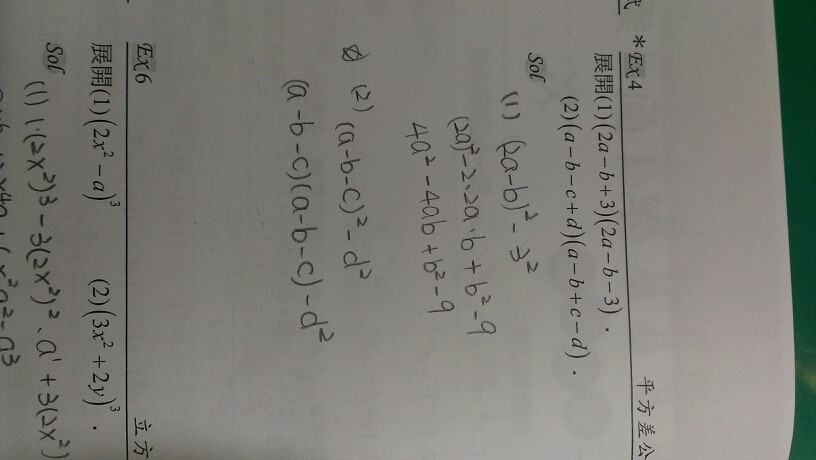 *Ex4
平方差公
展開(1)(2a-b+3)(2a-b-3).
(2)(a-b-c+d)(a-b+c-d).
Sol
(1) (2a-b)²-3²
(2a)²-2·2a·b+b²-9
4a²-4ab+b²-9
(2) (a-b-c)²-d²
(a-b-c)(a-b-c)-d²
Ex6
立方
展開(1)(2x²-a)³ (2)(3x²+2y)³.
Sol
(1) 1·(2x²)³-3(2x²)²·a¹+3(2x²)